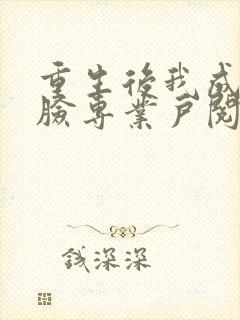 重生後我成
臉專業戶閱
錢深深